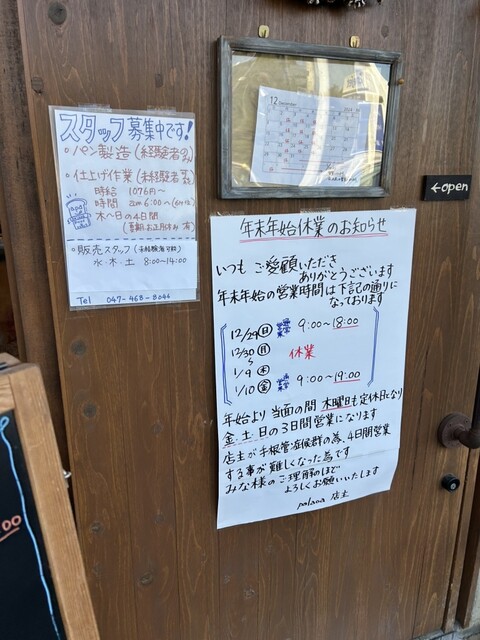 スタッフ募集中です!
・パン製造(経験者のみ)
・仕上げ作業(未経験者可)
時給 1076円〜
時間 6:00〜
木〜日の4日間
(夏期・お正月休み 有)
・販売スタッフ(未経験者可能)
水・木・土 8:00〜14:00
Tel 047-468-8044
12 December
←open
年末年始休業のお知らせ
いつも ご愛顧いただき
ありがとうございます
年末年始の営業時間は下記の通りに
なっております
12/29(日) 9:00〜18:00
12/30(月)
〜 休業
1/9(木)
1/10(金) 9:00〜19:00
年始より 当面の間 木曜日も定休日となり
金、土、日の3日間営業になります
店主が手根管症候群の為、4日間営業
する事が難しくなった為です
みな様のご理解のほど
よろしくお願いいたします
palaoa 店主
00